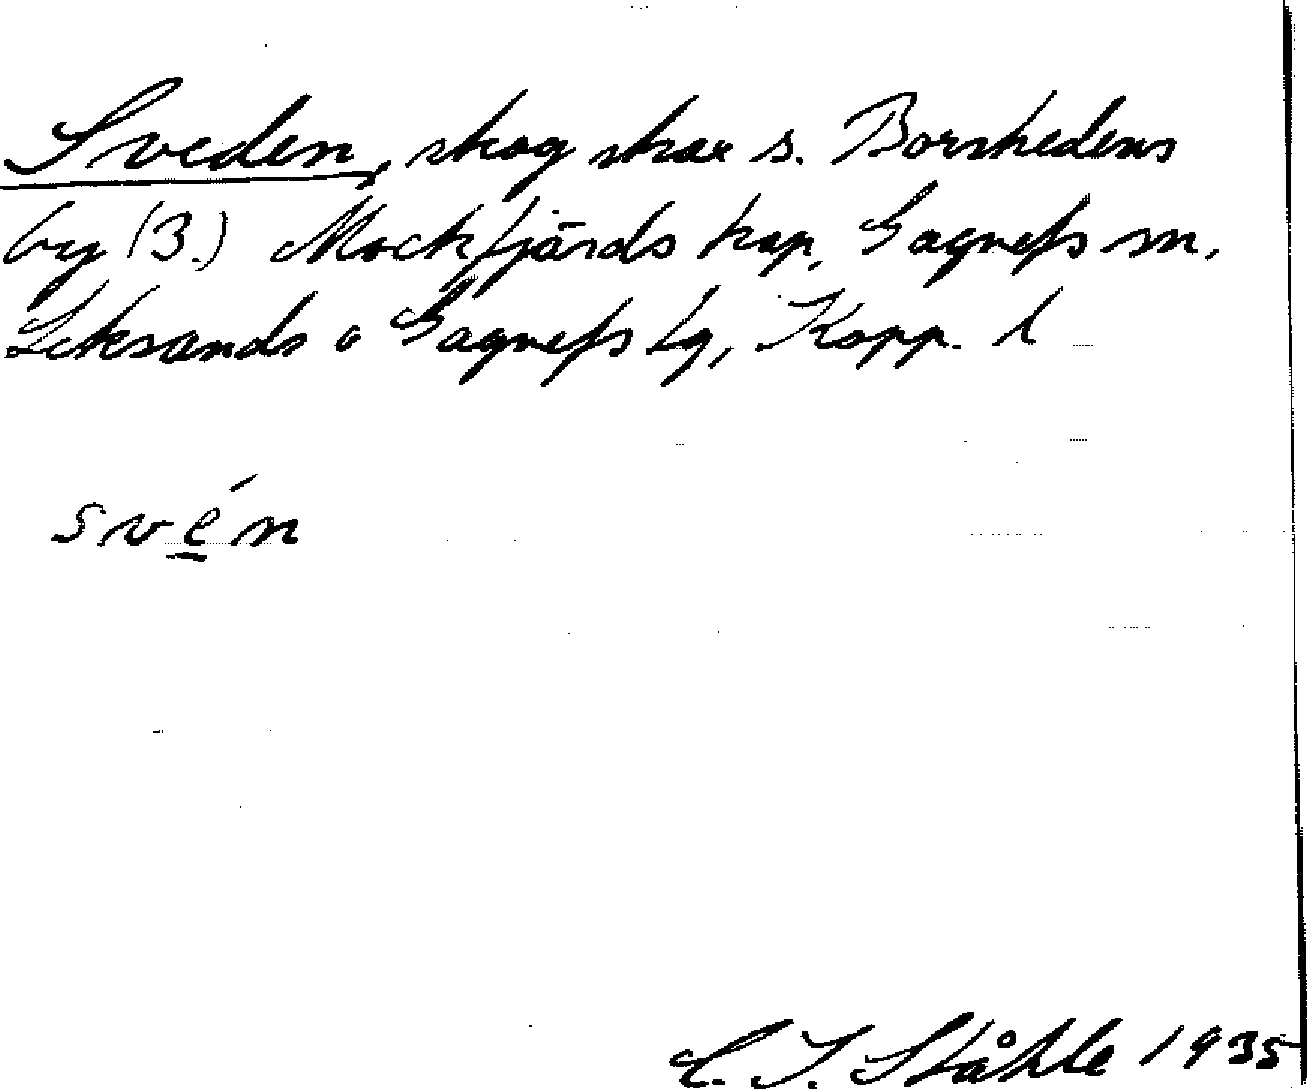 Sveden, skog skax s. Borshedens
by (3.) Mockfjärds kap, Gagnefs sn.
Leksands o Gagnefs tg, Kopp. l
svén
C. I. Ståhle 1935